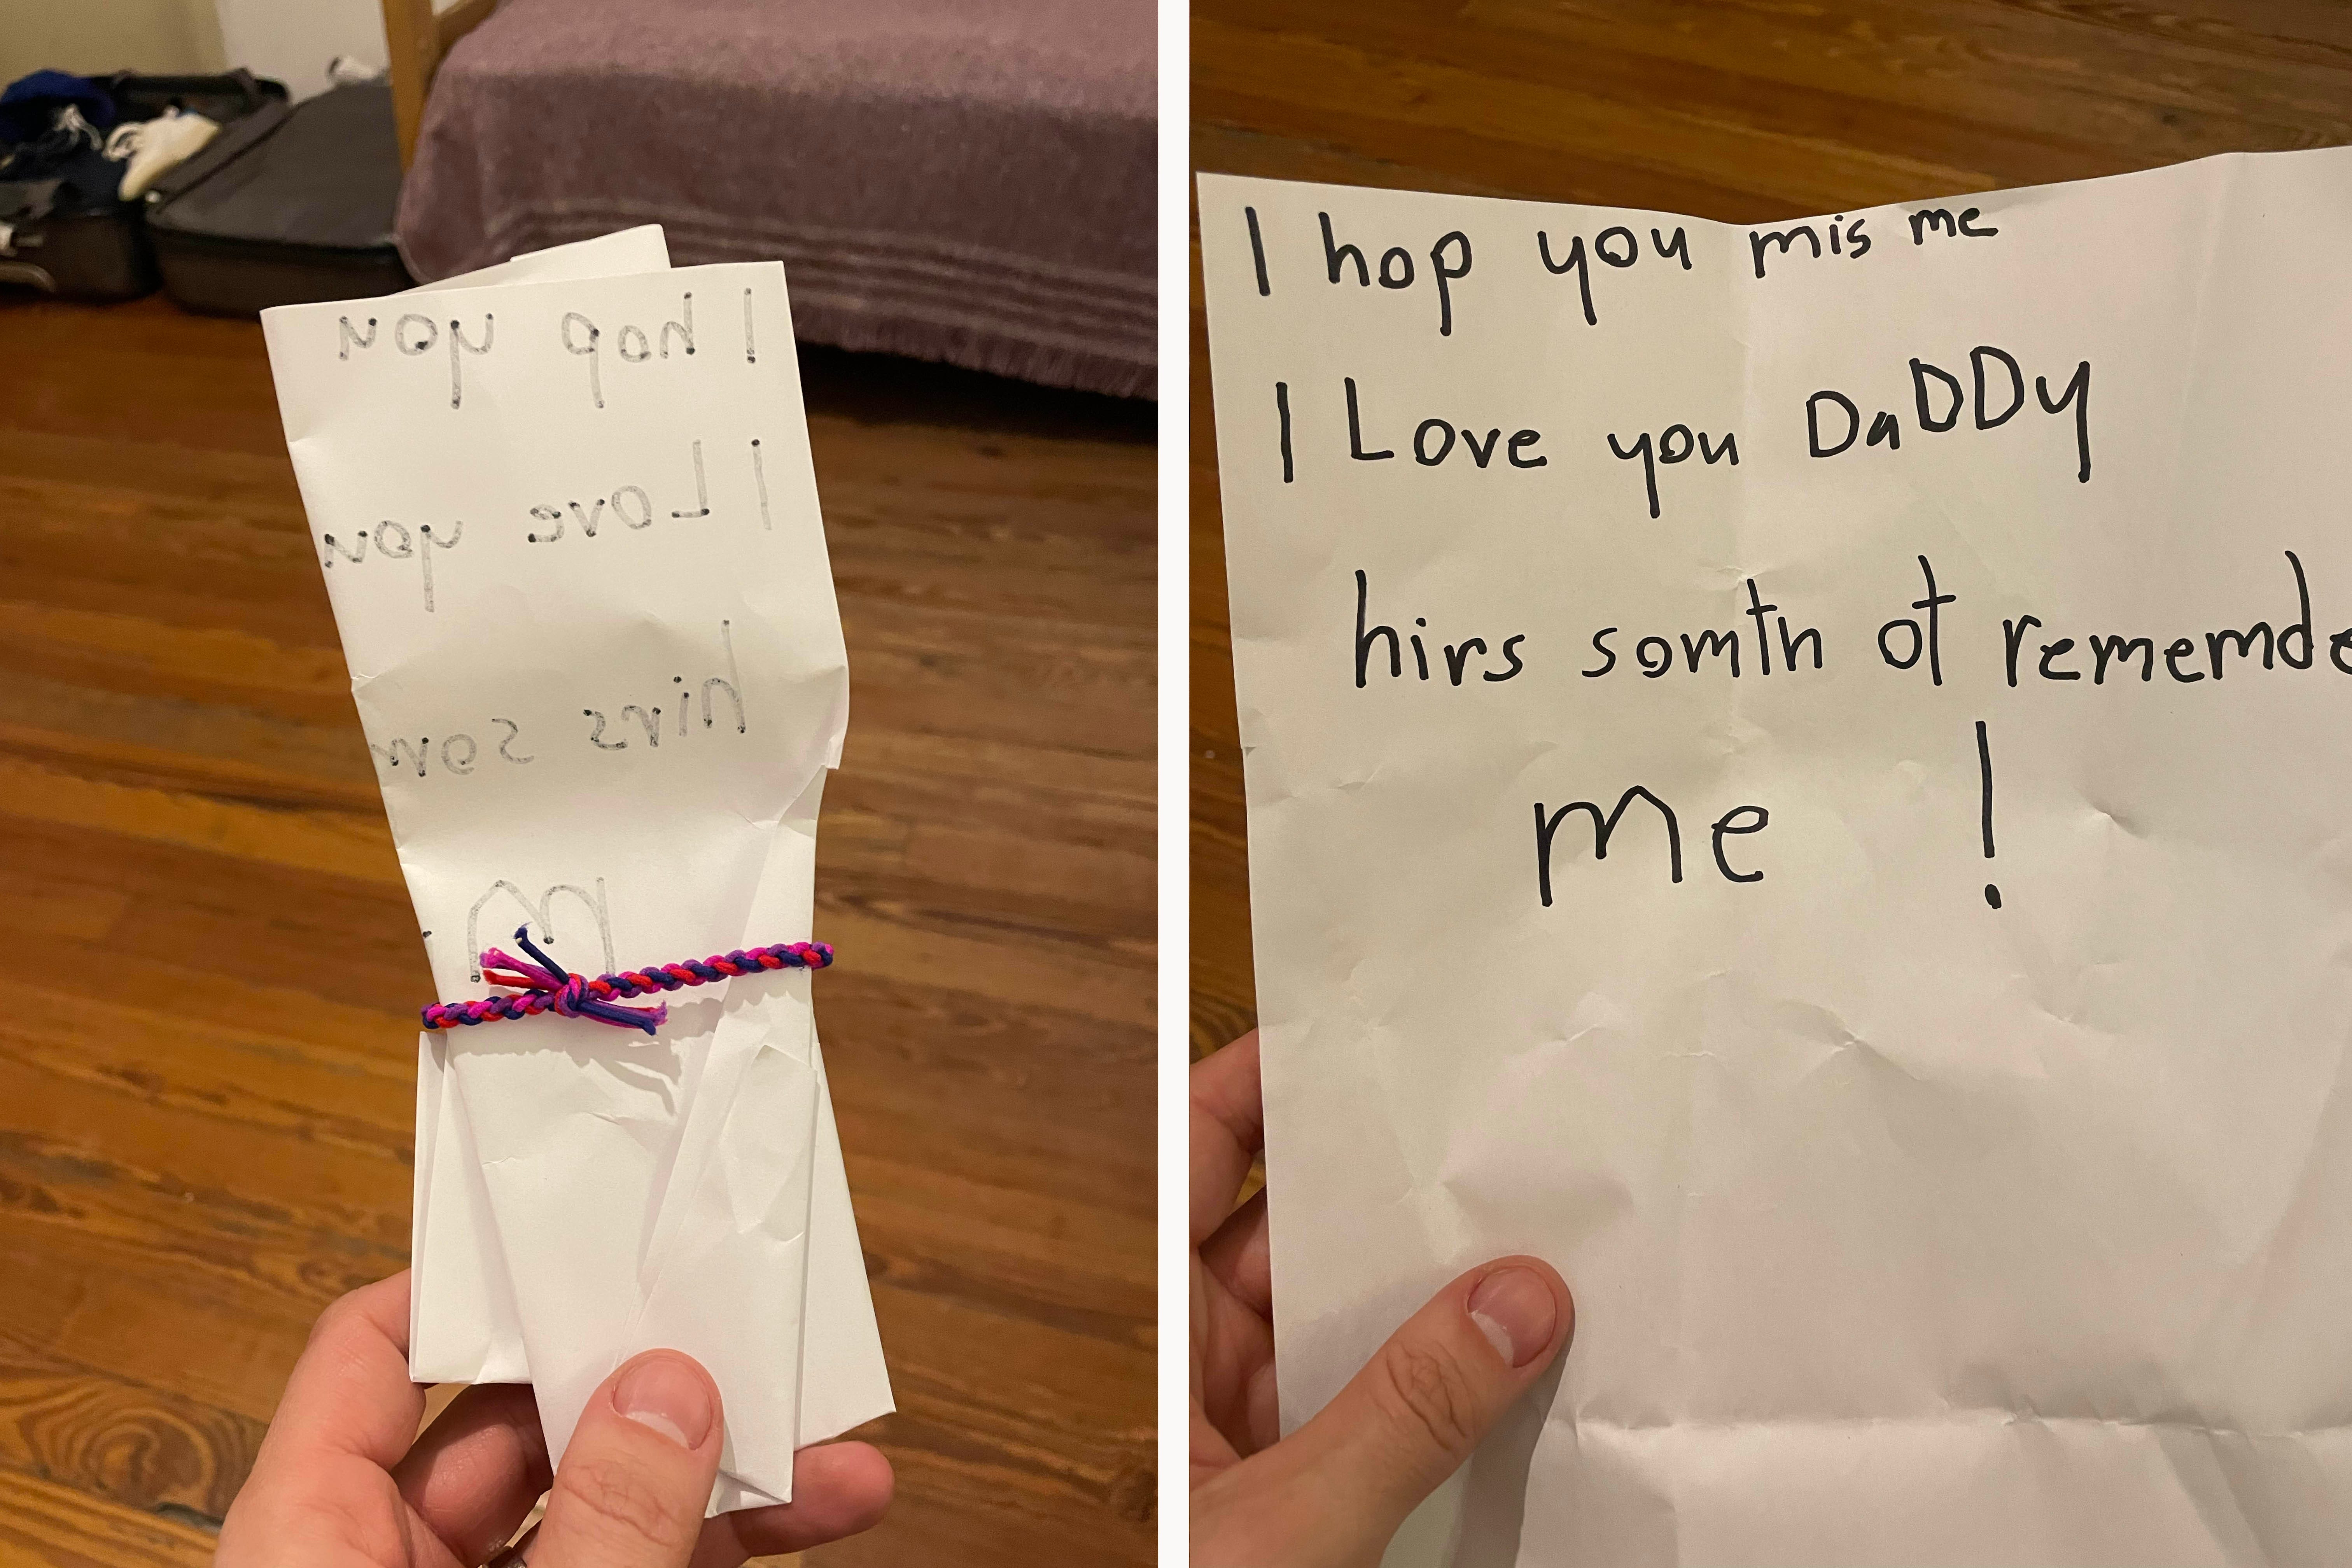 I hop you
I Love you
hirs som
M
I hop you mis me
I Love you DaDDy
hirs somth ot rememde
me !